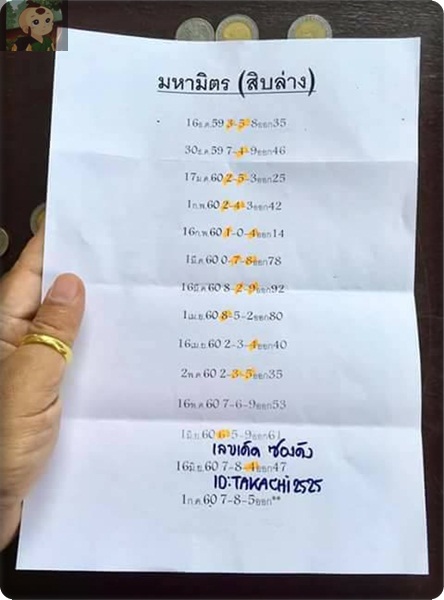 มหามิตร (สิบล่าง)
16ธ.ค.59 3-5-8ออก35
30ธ.ค.59 7-4-9ออก46
17ม.ค.60 2-5-3ออก25
1ก.พ.60 2-4-3ออก42
16ก.พ.60 1-0-4ออก14
1มี.ค.60 0-7-8ออก78
16มี.ค.60 8-2-9ออก92
1เม.ย.60 8-5-2ออก80
16เม.ย.60 2-3-4ออก40
2พ.ค.60 2-3-5ออก35
16พ.ค.60 7-6-9ออก53
1มิ.ย.60 6-5-9ออก61
เลขเด็ด ซองดัง
16มิ.ย.60 7-8-4ออก47
ID:TAKACHI2525
1ก.ค.60 7-8-5ออก**